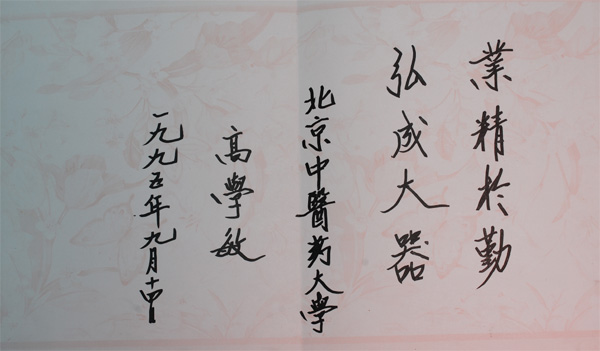 業精於勤
弘成大器
北京中醫药大學
高學敏
一九九五年九月十日